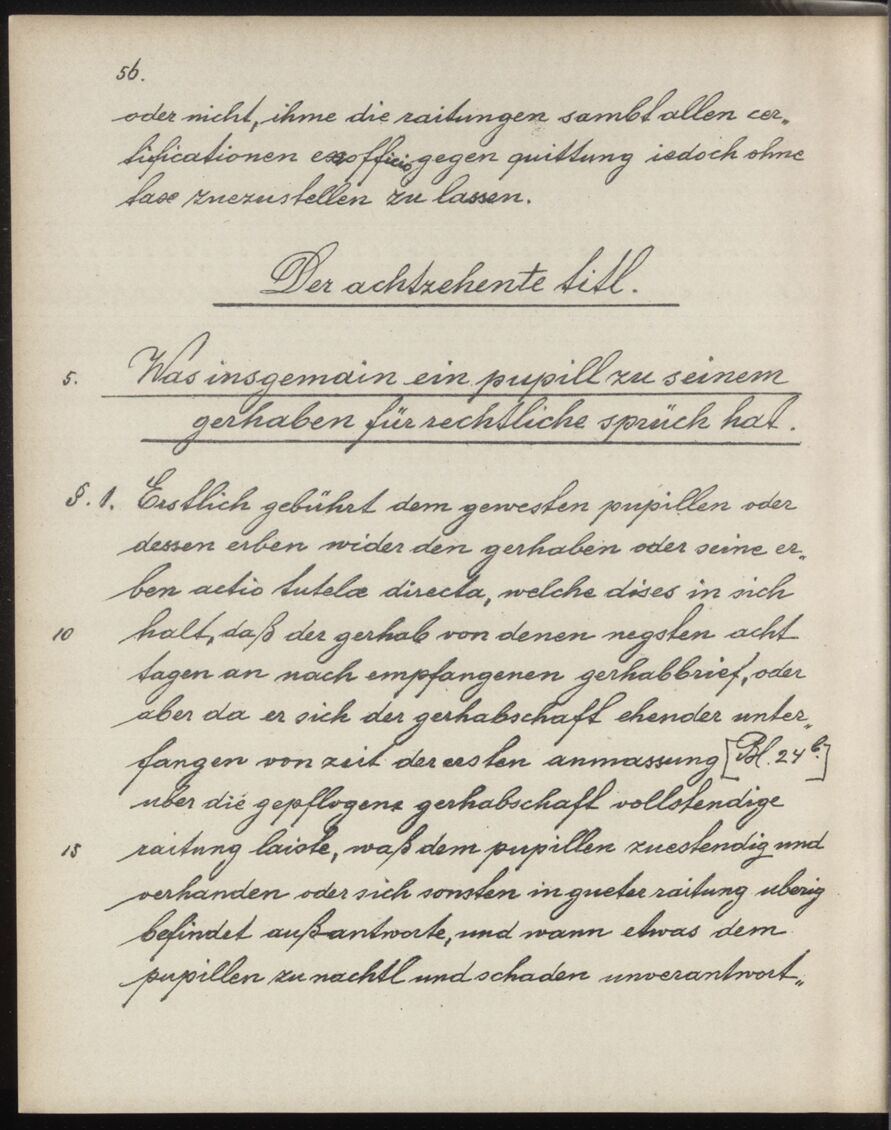 56.
oder nicht, ihme die raitungen sambt allen cer„
tificationen ex officio gegen quittung iedoch ohne
tax zuezustellen zu lassen.
Der achtzehente titl.
5. Was insgemain ein pupill zu seinem
gerhaben für rechtliche sprüch hat.
§. 1. Erstlich gebührt dem gewesten pupillen oder
dessen erben wider den gerhaben oder seine er„
ben actio tutelæ directa, welche dises in sich
10 halt, daß der gerhab von denen negsten acht
tagen an nach empfangenen gerhabbrief, oder
aber da er sich der gerhabschaft ehender unter„
fangen von zeit der ersten anmassung [Bl. 24 b.]
uber die gepflogene gerhabschaft vollstendige
15 raitung laiste, waß dem pupillen zuestendig und
verhanden oder sich sonsten in gueter raitung uberig
befindet außantworte, und wann etwas dem
pupillen zu nachtl und schaden unverantwort„